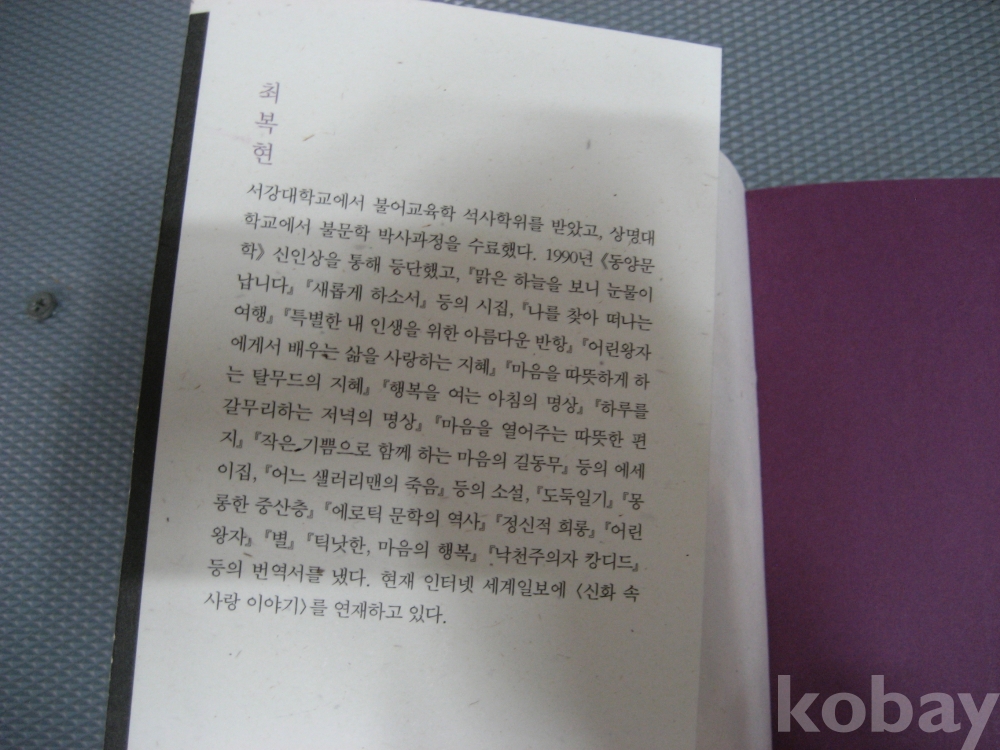 최복현
서강대학교에서 불어교육학 석사학위를 받았고, 상명대
학교에서 불문학 박사과정을 수료했다. 1990년 《동양문
학》 신인상을 통해 등단했고, 『맑은 하늘을 보니 눈물이
납니다』 『새롭게 하소서』 등의 시집, 『나를 찾아 떠나는
여행』 『특별한 내 인생을 위한 아름다운 반항』 『어린왕자
에게서 배우는 삶을 사랑하는 지혜』 『마음을 따뜻하게 하
는 탈무드의 지혜』 『행복을 여는 아침의 명상』 『하루를
갈무리하는 저녁의 명상』 『마음을 열어주는 따뜻한 편
지』 『작은 기쁨으로 함께 하는 마음의 길동무』 등의 에세
이집, 『어느 샐러리맨의 죽음』 등의 소설, 『도둑일기』 『몽
롱한 중산층』 『에로틱 문학의 역사』 『정신적 희롱』 『어린
왕자』 『별』 『틱낫한, 마음의 행복』 『낙천주의자 캉디드』
등의 번역서를 냈다. 현재 인터넷 세계일보에 〈신화 속
사랑 이야기〉를 연재하고 있다.
kobay